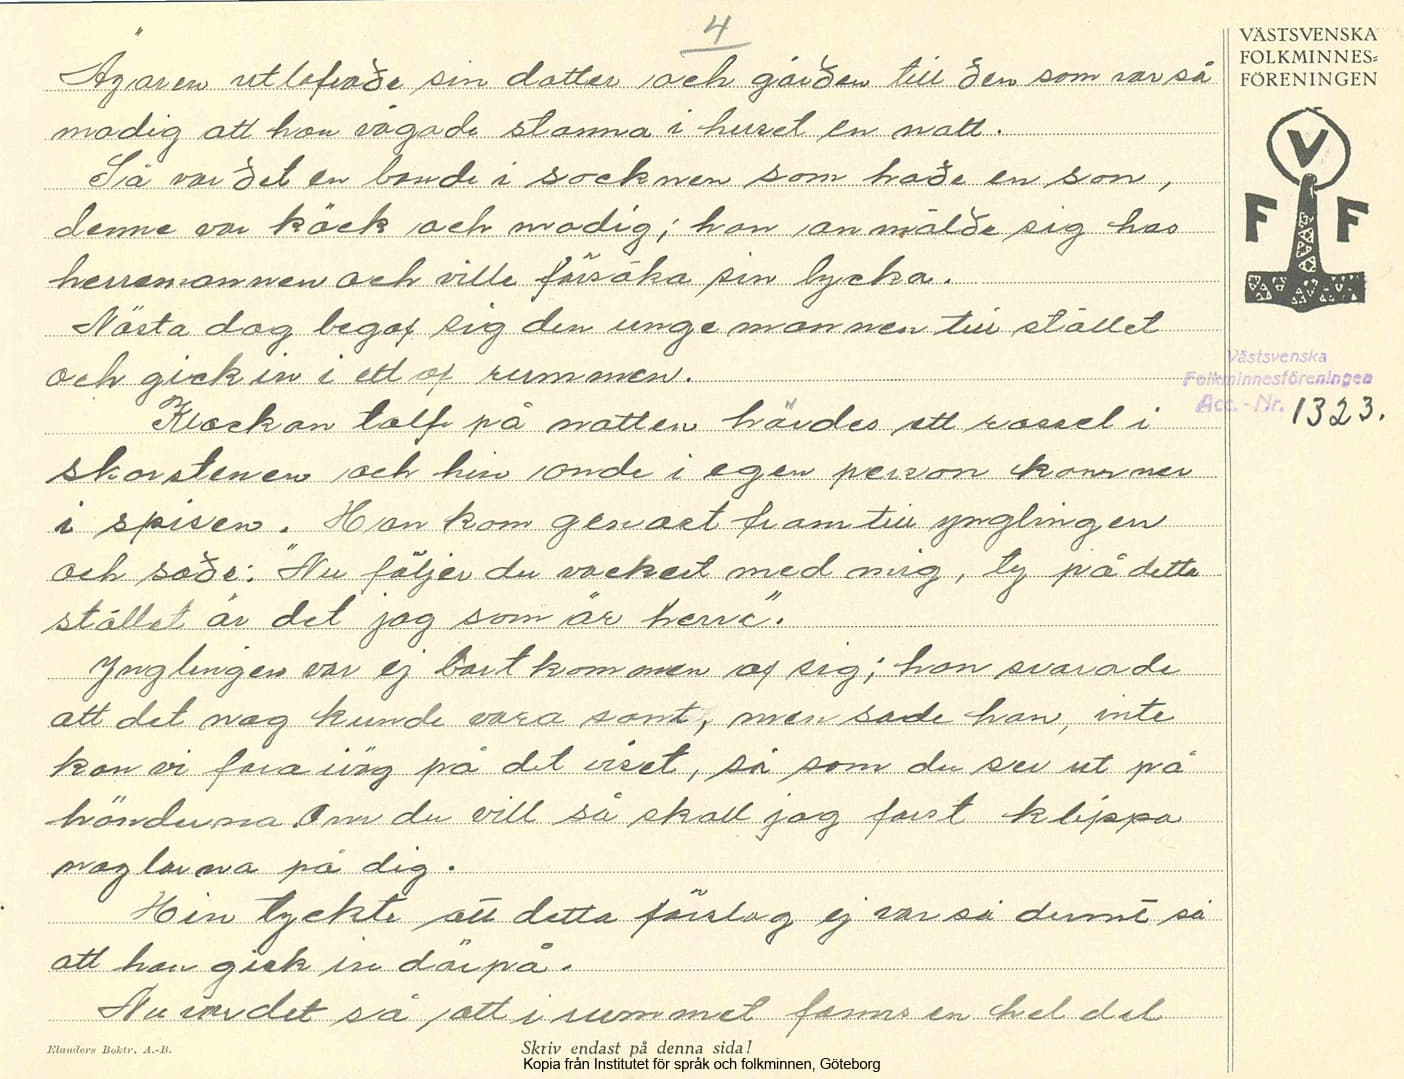 4
Ägaren utlofvade sin dotter och gården till den som var så
modig att han vågade stanna i huset en natt.
Så var det en bonde i socknen som hade en son,
denne var käck och modig; han anmälde sig hos
herremannen och ville försöka sin lycka.
Nästa dag begaf sig den unge mannen till stället
och gick in i ett af rummen.
Klockan tolf på natten hördes ett rassel i
skorstenen och hin onde i egen person kom ner
i spisen. Han kom genast fram till ynglingen
och sade: "Nu följer du vackert med mig, ty på detta
stället är det jag som är herre".
Ynglingen var ej bortkommen af sig; han svarade
att det nog kunde vara sant, men sade han, inte
kan vi fara iväg på det viset, så som du ser ut på
händerna. Om du vill så skall jag först klippa
naglarna på dig.
Hin tyckte att detta förslag ej var så dumt så
att han gick in därpå.
Nu var det så att i rummet fanns en hel del
VÄSTSVENSKA
FOLKMINNES=
FÖRENINGEN
V
F F
Västsvenska
Folkminnesföreningen
Acc.-Nr. 1323.
Elanders Boktr. A.-B.
Skriv endast på denna sida!
Kopia från Institutet för språk och folkminnen, Göteborg